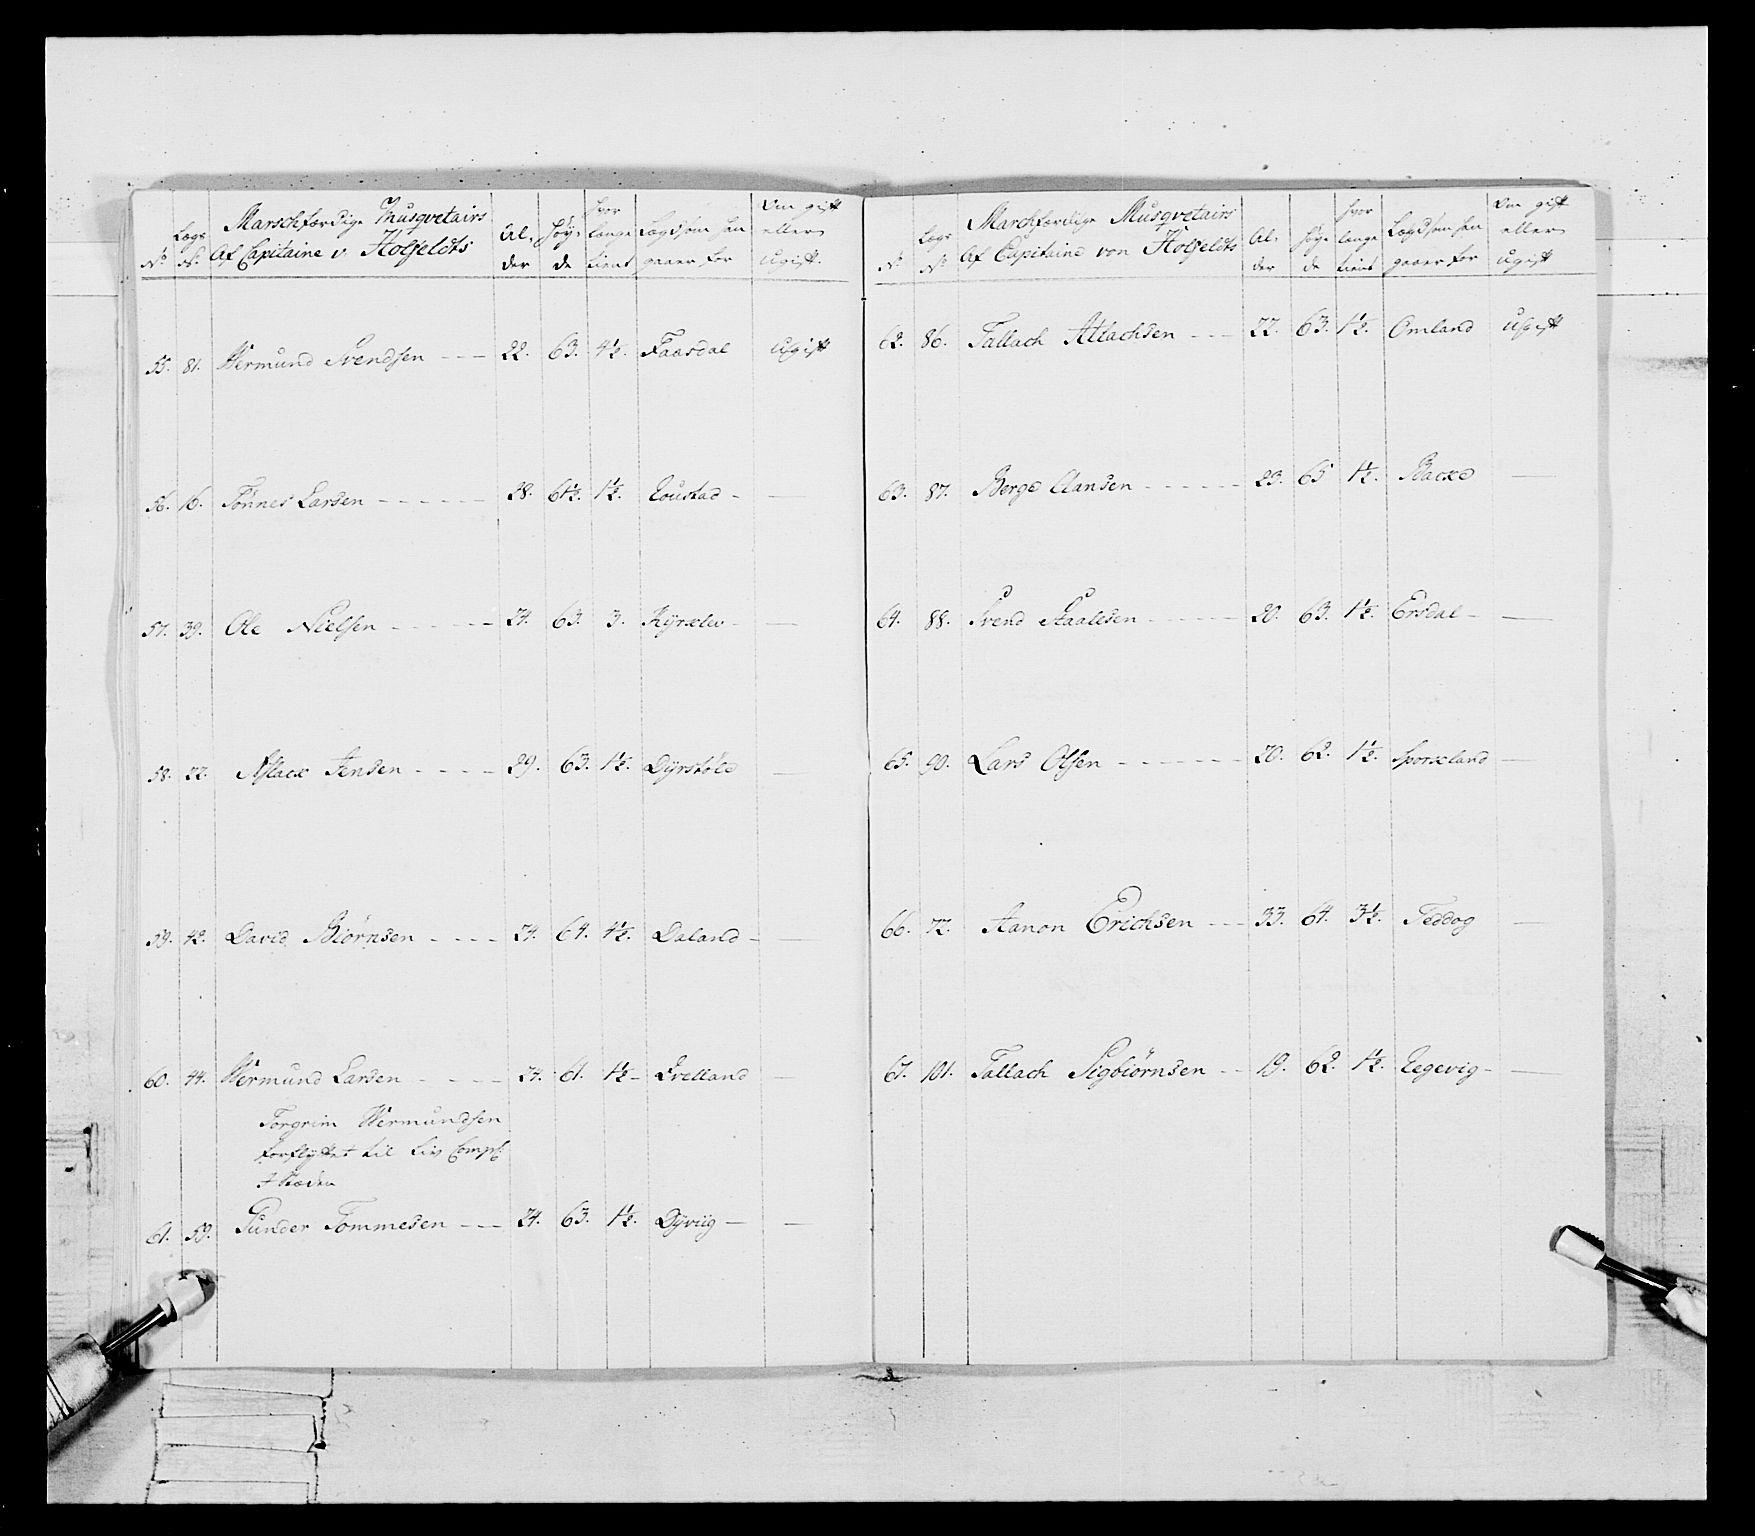 No. Lægs No. Marschfærdige Musqvetairs Af Capitaine v. Holfeldts Al. der Høy. de hvor lange tient Lægd som han gaaer for Om gift eller Ugift.
55. 81. Wermund Svendsen - - - 22. 63. 4½. Faasdal Ugift
56. 16. Tönnes Larsen - - - - - - 28. 61½. 1½. Roustad - —
57. 39. Ole Nielsen - - - - - - 24. 63. 3. —
58. 22. Aslack Jensen - - - - 29. 63. 1½. Dyrstöle —
59. 42. David Biörnsen - - - - 24. 64. 4½. Daland - —
60. 44. Wermund Larsen - - - - 24. 61. 1½ - Qvelland —
Torgrim Wermundsen
forflyttet til Liv Comp:
I Stæden
61. 59. Gunder Tommesen - - - 24. 63. 1½. Dyviig — —
No. Lægs No. Marchfærdige Musqvetairs Af Capitaine von Holfeldts Al. der Høy. de hvor lange tient Lægd som han gaaer for Om gift eller Ugift
62. 86. Tallach Atlachsen - - - 22. 63. 1½. Omland Ugift
63. 87. Berge Clausen - - - - - - 23. 65 1½. Backe —
64. 88. Svend Staalesen - - - - - - 20. 63. 1½. Ersdal - —
65. 90. Lars Olsen - - - - - - - 20. 62. 1½. Sporckland —
66. 72. Aanon Erichsen - - - 33. 64. 3½. Feddog —
67. 101. Tallach Sigbiörnsen - - 19. 62. 1½. Regevig - —